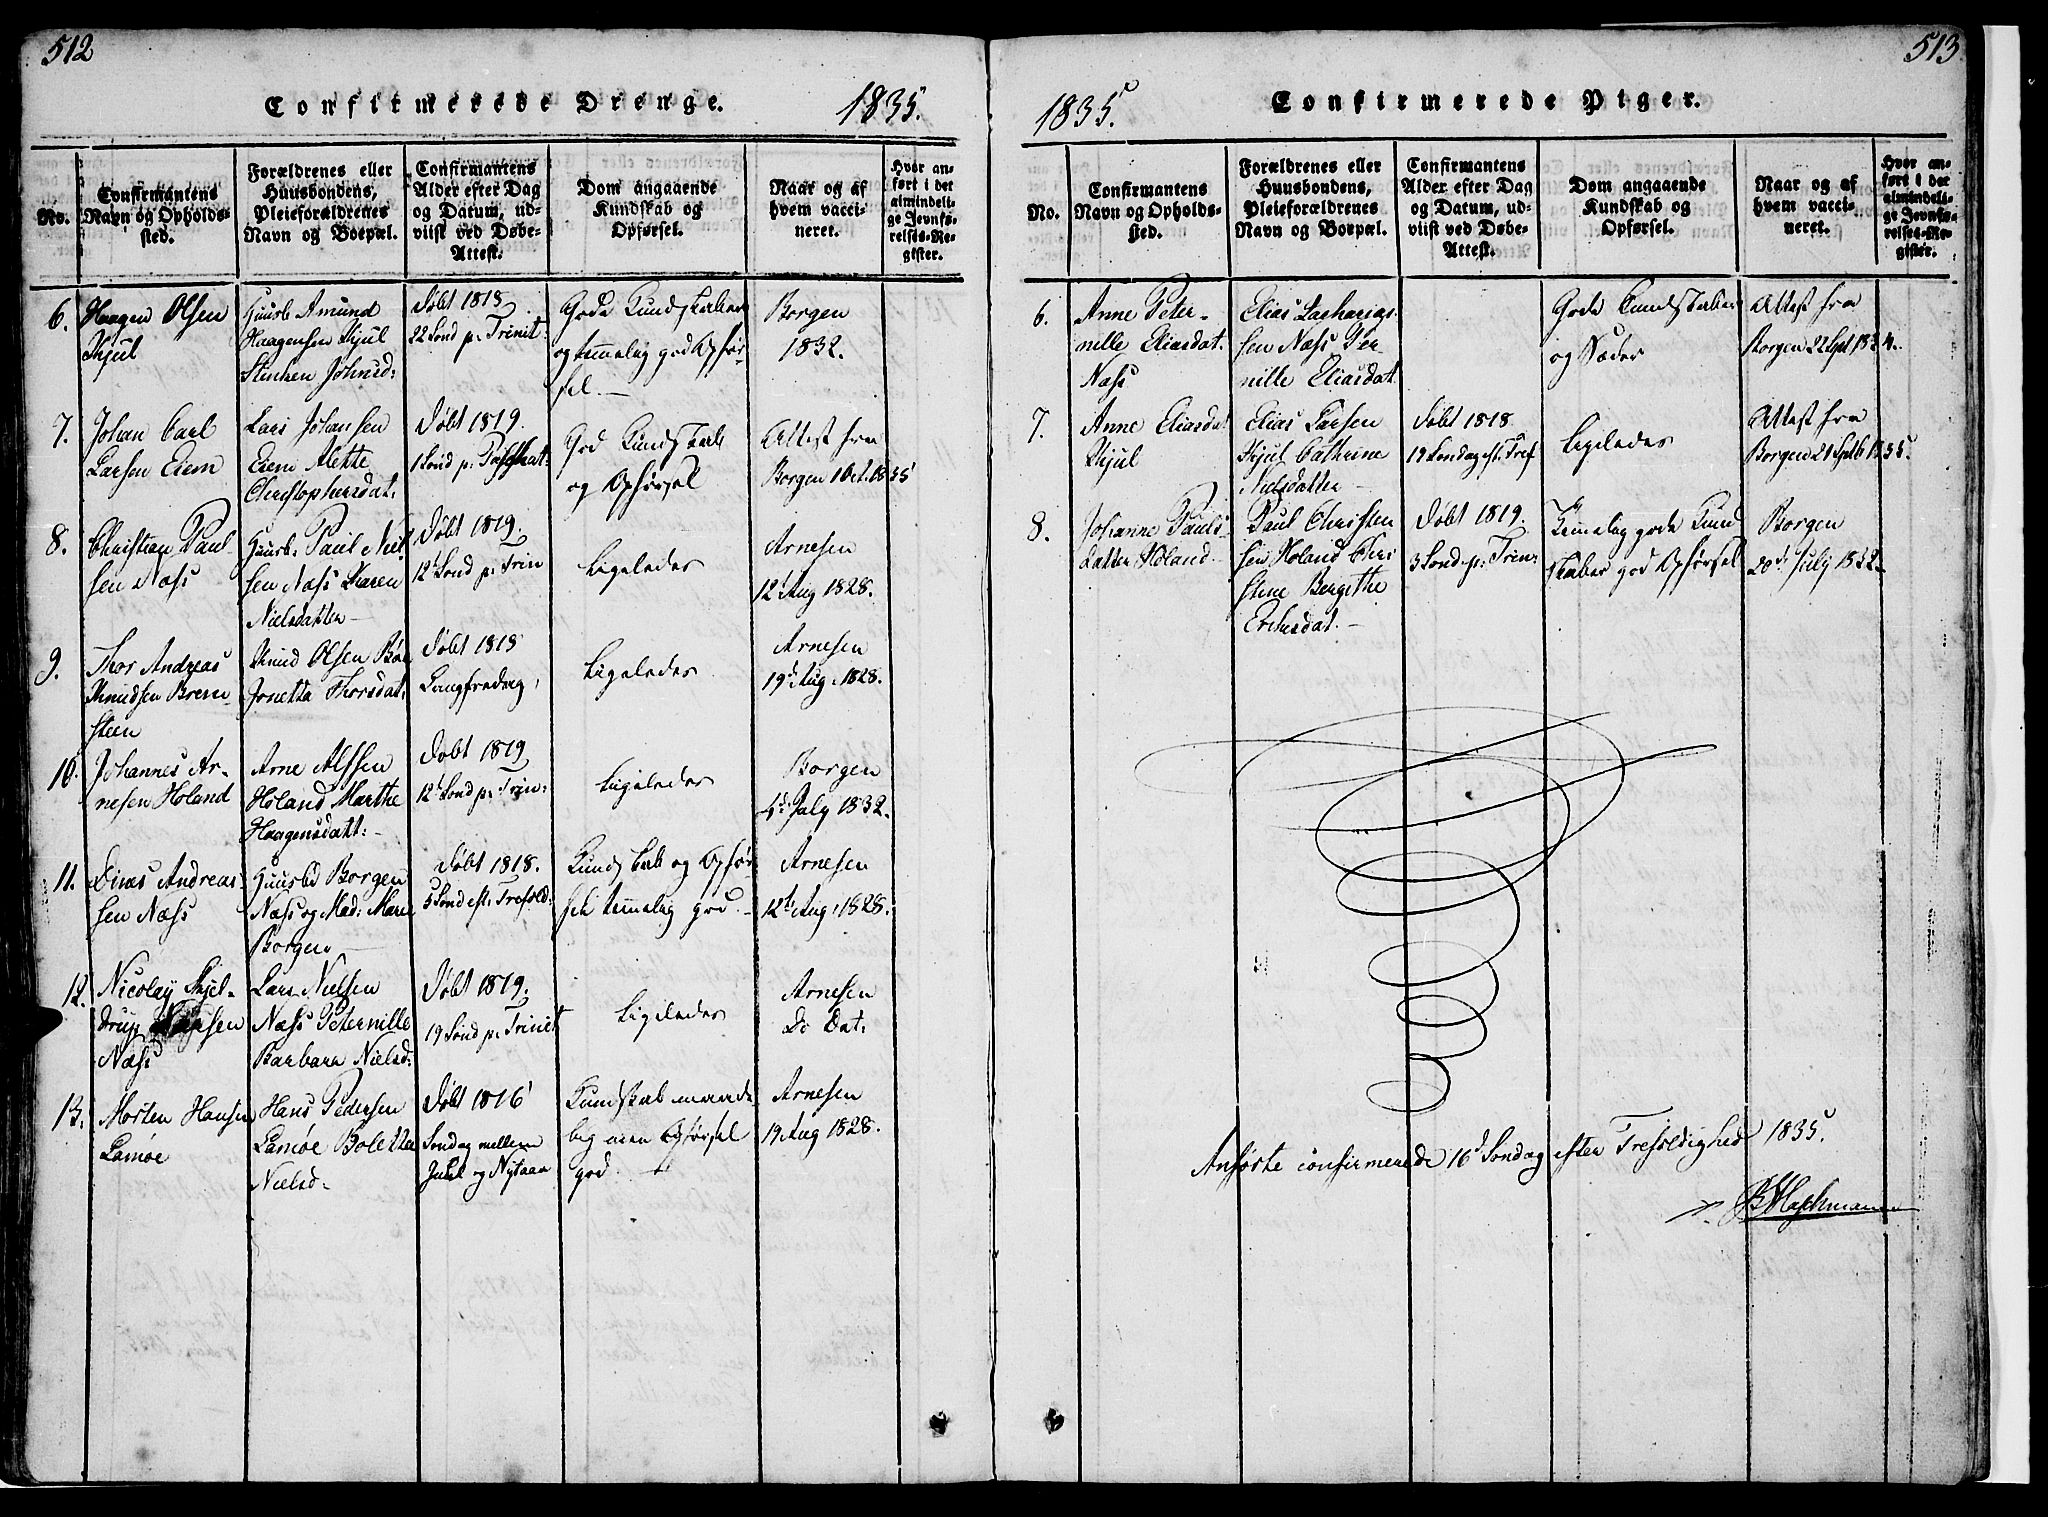 512
Confirmerede Drenge.
1835.
No.
Confirmantens
Navn og Opholds-
sted.
Forældrenes eller
Huusbondens,
Pleieforældrenes
Navn og Boepæl.
Confirmantens
Alder efter Dag
og Datum, ud-
viist ved Døbe-
Attest.
Dom angaaende
Kundskab og
Opførsel.
Naar og af
hvem vacci-
neret.
Hvor an-
ført i det
almindeli-
ge Jevnfø-
relses-Re-
gister.
6.
Haagen Olsen
Kjul
Huusb Amund
Haagensen Kjul
Steuken Johnsd:
Døbt 1818
22 Sond p: Trinit:
Gode Kundskaber
og temmelig god Opfør-
sel.
Borgen
1832.
7.
Johan Carl
Larsen Eiem
Lars Johansen
Eiem Alette
Christophersdat:
Døbt 1819.
1 Sønd p: Paschat:
God Kundskab
og Opførsel
Attest fra
Borgen 1 Oct. 1835
8.
Christian Paul-
sen Næss
Huusb: Paul Niel
sen Næss Karen
Nielsdatter
Døbt 1819.
12t Sond p: Trin
Ligeledes
Arnesen
12t Aug 1828.
9.
Thor Andreas
Knudsen Brem-
steen
Knud Olsen Bøe
Jonetta Thorsdat:
Døbt 1818
Langfredag,
Ligeledes
Arnesen
19d Aug: 1828.
10.
Johannes Ar-
nesen Holand
Arne Alssen
Holand Marthe
Haagensdatt:
Døbt 1819
12t Sond p: Trin:
Ligeledes
Borgen
4de July 1832.
11.
Dines Andreas-
sen Næss
Huusbd Borgen
Næss og Mad: Maren
Borgen
Døbt 1818.
5 Sond eft: Trefold:
Kundskab og Opfør
sel temmelig god.
Arnesen
12te Aug: 1828.
12.
Nicolay Skjel-
drup Larsen
Næss
Lars Nielsen
Næss Peternille
Barbara Nielsd:
Døbt 1819.
19 Sond p: Trinit
Ligeledes
Arnesen
Do Dat:
13.
Morten Hansen
Lamøe
Hans Pedersen
Lamøe Bolette
Nielsd
Døbt 1816
Sondag mellem
Juul og Nytaar
Kundskab maade-
lig men Opførsel
god.
Arnesen
19 Aug 1828.
513
1835.
Confirmerede Piger.
No.
Confirmantens
Navn og Opholds-
sted.
Forældrenes eller
Huusbondens,
Pleieforældrenes
Navn og Boepæl.
Confirmantens
Alder efter Dag
og Datum, ud-
viist ved Døbe-
Attest.
Dom angaaende
Kundskab og
Opførsel.
Naar og af
hvem vacci-
neret.
Hvor an-
ført i det
almindeli-
ge Jevnfø-
relses-Re-
gister.
6.
Anne Peter-
nille Eliasdat.
Næss
Elias Zacharias-
sen Næss Per-
nille Eliasdat
Gode Kundskaber
og Sæder
Attest fra
Borgen 22 Sept 1834.
7.
Anne Eliasdat
Kjul
Elias Larsen
Kjul Cathrine
Nielsdatter
Døbt 1818.
19 Sondag eft. Tref
Ligeledes
Attest fra
Borgen 21 Septb 1835.
8.
Johanne Pauls-
datter Holand
Paul Christen
sen Holand Chri
stine Bergithe
Erchsdat.
Døbt 1819.
3 Sond p: Trin:
Temmelig gode Kund
skaber god Opførsel
Borgen
20de July 1832.
Anførte confirmerede 16d Sondag efter Trefoldighed 1835.